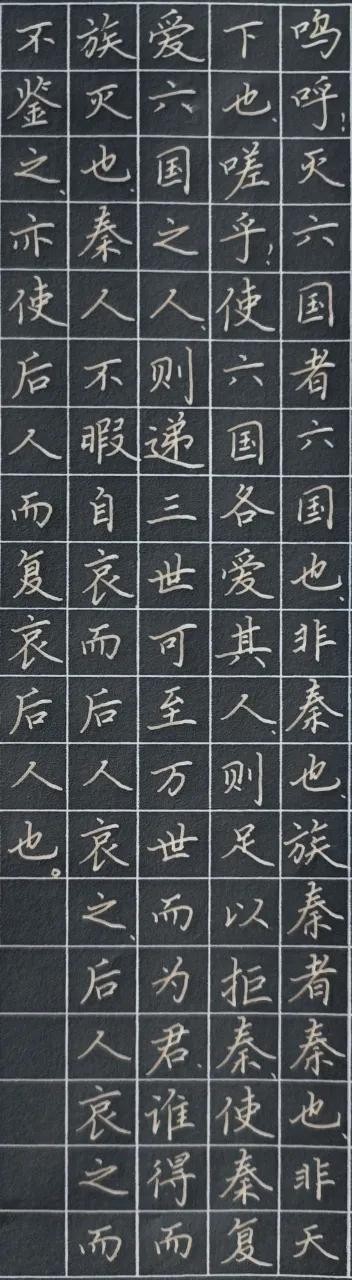 呜呼！灭六国者六国也、非秦也、族秦者秦也、非天
下也、嗟乎！使六国各爱其人、则足以拒秦、使秦复
爱六国之人、则递三世可至万世而为君、谁得而
族灭也、秦人不暇自哀而后人哀之、后人哀之而
不鉴之、亦使后人而复哀后人也。